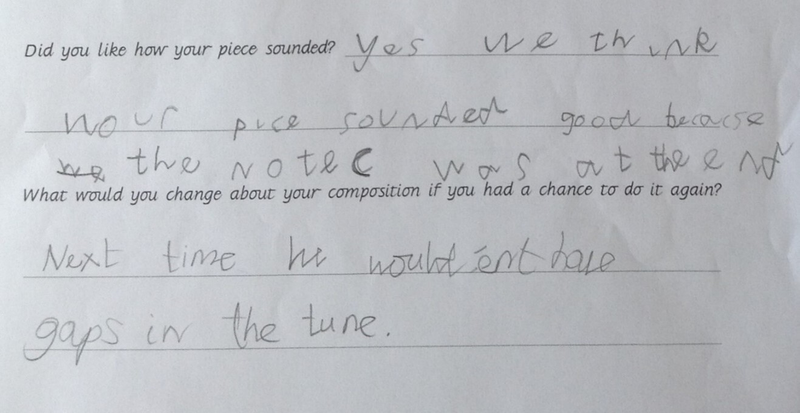 Did you like how your piece sounded? Yes we think
wour pice sounded good because
we the note C was at the end
What would you change about your composition if you had a chance to do it again?
Next time hi would ent have
gaps in the tune.